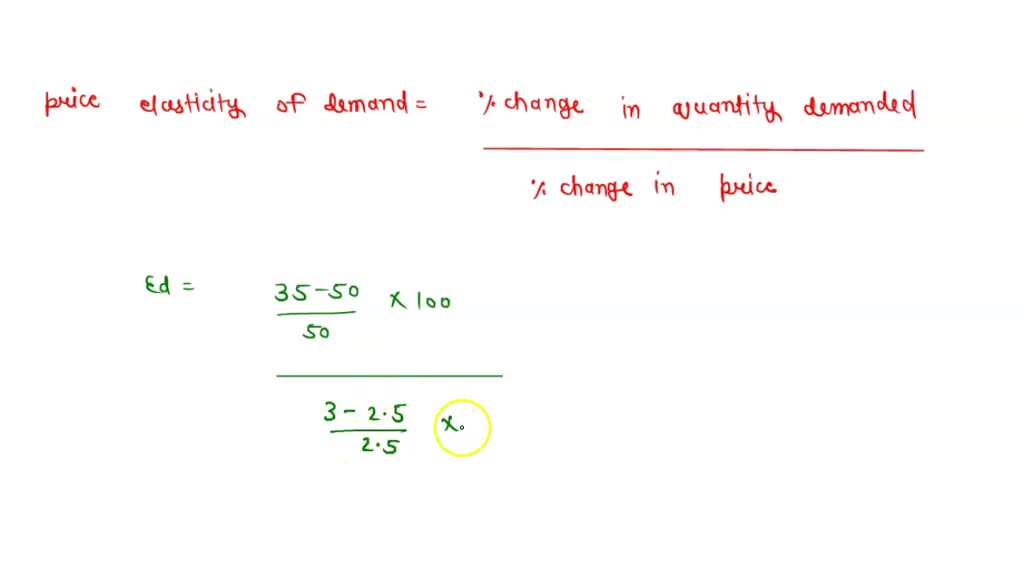 price elasticity of demand = % change in quantity demanded
% change in price
Ed = 35-50 x 100
50
3 - 2.5 x
2.5